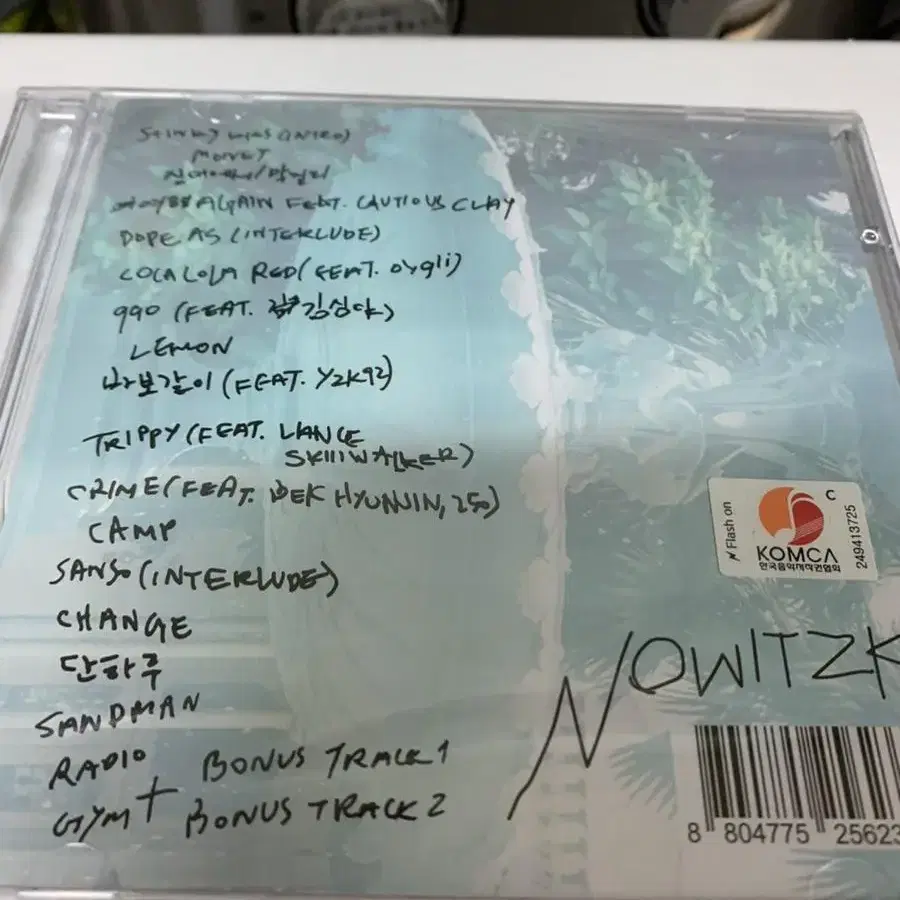 STINKY KISS (INTRO)
MONET
침대에서/막걸리
여여 AGAIN FEAT. CAUTIOUS CLAY
DOPE AS (INTERLUDE)
COCA COLA RED (FEAT. OYGLI)
990 (FEAT. 김심야)
LEMON
바보같이 (FEAT. YZK92)
TRIPPY (FEAT. LIANCE
SKIIIWALKER)
CRIME (FEAT. BEK HYUNJIN, 250)
CAMP
SANSO (INTERLUDE)
CHANGE
단하루
SANDMAN
RADIO BONUS TRACK 1
GYM+ BONUS TRACK 2
Flash on
C
KOMCA
한국음악저작권협회
249413725
NOWITZK
8 804775 25623